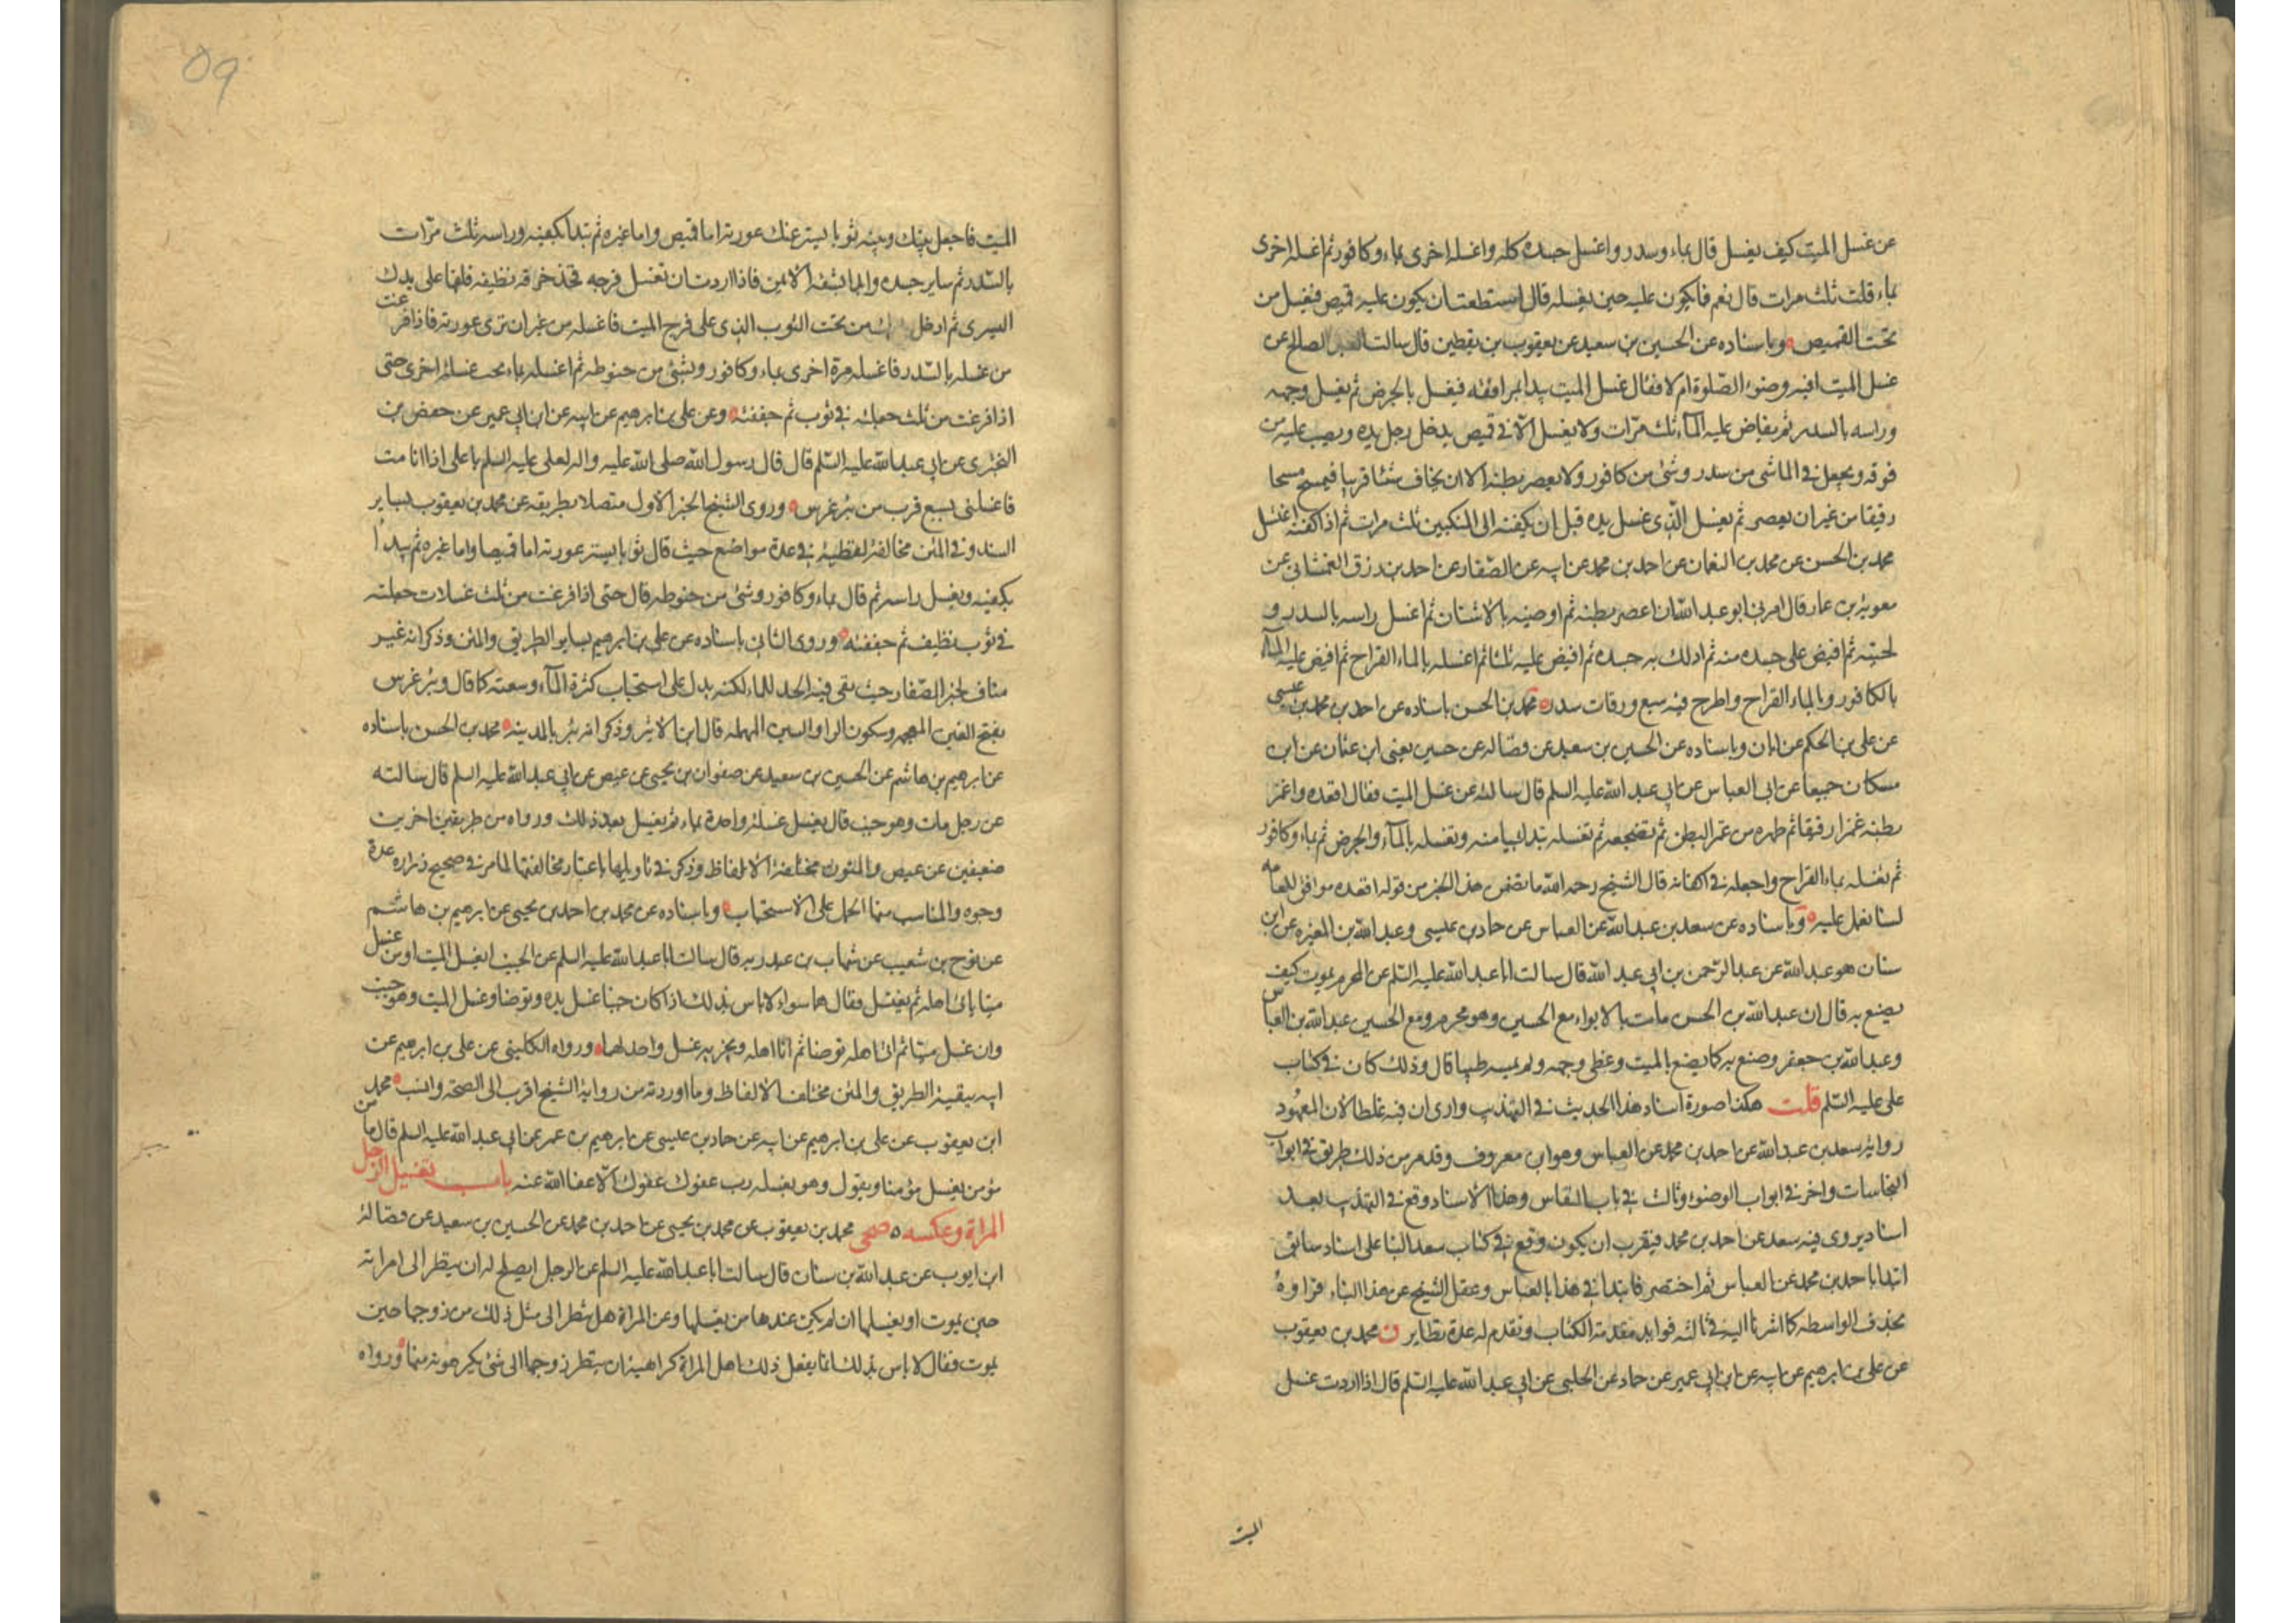 عن غسل الميت كيف يغسل قال بماء وسدر واغسل جسده كله واغسله اخرى بماء وكافور ثم اغسله اخرى
بماء قلت ثلث مرات قال نعم فما يكون عليه حين يغسله قال ان استطعت ان يكون عليه قميص فيغسل من
تحت القميص وباسناده عن الحسين بن سعيد عن يعقوب بن يقطين قال سالت العبد الصالح عن
غسل الميت افيه وضوء الصلوة ام لا فقال غسل الميت يبدا بمرافقه فيغسل بالحرض ثم يغسل وجهه
وراسه بالسدر ثم يفاض عليه الماء ثلث مرات ولا يغسل الا في قميص يدخل رجل يده ويصب عليه من
فوقه ويجعل في الما شئ من سدر وشئ من كافور ولا يعصر بطنه الا ان يخاف شئا قريبا فيمسح مسحا
رقيقا من غير ان يعصر ثم يغسل الذى غسل يده قبل ان يكفنه الى المنكبين ثلث مرات ثم اذا كفنه اغتسل
محمد بن الحسن عن محمد بن النعمان عن احمد بن محمد عن ابيه عن الصفار عن احمد بن رزق الغمشانى عن
معوية بن عمار قال امرنى ابو عبد الله ان اعصر بطنه ثم اوضيه بالاشنان ثم اغسل راسه بالسدر و
لحيته ثم افيض على جسده منه ثم ادلك به جسده ثم افيض عليه ثلثا ثم اغسله بالماء القراح ثم افيض عليه الماء
بالكافور وبالماء القراح واطرح فيه سبع ورقات سدر محمد بن الحسن باسناده عن احمد بن محمد بن عيسى
عن على بن الحكم عن ابان وباسناده عن الحسين بن سعيد عن فضاله عن حسين يعنى ابن عثمان عن ابن
مسكان جميعا عن ابى العباس عن ابى عبد الله عليه السلم قال سالته عن غسل الميت فقال اقعده واغمز
بطنه غمزا رفيقا ثم طهره من غمز البطن ثم تضجعه ثم تغسله تبدا بميامنه وتغسله بالماء والحرض ثم بماء وكافور
ثم تغسله بماء القراح واجعله في اكفانه قال الشيخ رحمه الله ما تضمن هذا الخبر من قوله اقعده موافق للعامه
لسنا نعمل عليه وباسناده عن سعد بن عبد الله عن العباس عن حماد بن عيسى وعبد الله بن المغيره عن ابن
سنان هو عبد الله عن عبد الرحمن بن ابى عبد الله قال سالت ابا عبد الله عليه السلم عن المحرم يموت كيف
يصنع به قال ان عبد الله بن الحسن مات بالابواء مع الحسين وهو محرم ومع الحسين عبد الله بن العباس
وعبد الله بن جعفر وصنع به كما يصنع بالميت وغطى وجهه ولم يمسه طيبا قال وذلك كان في كتاب
على عليه السلم قلت هكذا صورة اسناد هذا الحديث في التهذيب وارى ان فيه غلطا لان المعهود
رواية سعد بن عبد الله عن احمد بن محمد عن العباس وهو ابن معروف وقد مر من ذلك طريق في ابواب
النجاسات واخر في ابواب الوضوء وثالث في باب النفاس وهذا الاسناد وقع في التهذيب بعد
اسناد يروى فيه سعد عن احمد بن محمد فيقرب ان يكون وقع في كتاب سعد البنا على اسناد سابق
ابتداه باحمد بن محمد عن العباس ثم اختصر فابتدا في هذا بالعباس وغفل الشيخ عن هذا البناء فزاوره
بحذف الواسطه كما اشرنا اليه في ثالثه فوايد مقدمة الكتاب وتقدم له عدة نظاير ن محمد بن يعقوب
عن على بن ابرهيم عن ابيه عن ابن ابى عمير عن حماد عن الحلبى عن ابى عبد الله عليه السلم قال اذا اردت غسل
الميت
09
الميت فاجعل بينك وبينه ثوبا يستر عنك عورته اما قميص واما غيره ثم تبدا بكفيه وراسه ثلث مرات
بالسدر ثم ساير جسده وابدا بشقه الايمن فاذا اردت ان تغسل فرجه فخذ خرقه نظيفه فلفها على يدك
اليسرى ثم ادخل يدك من تحت الثوب الذى على فرج الميت فاغسله من غير ان ترى عورته فاذا فرغت
من غسله بالسدر فاغسله مرة اخرى بماء وكافور وبشئ من حنوطه ثم اغسله بماء بحت غسلة اخرى حتى
اذا فرغت من ثلث جعلته في ثوب ثم جففته وعن على بن ابرهيم عن ابيه عن ابن ابى عمير عن حفص بن
البخترى عن ابى عبد الله عليه السلم قال قال رسول الله صلى الله عليه واله لعلى عليه السلم يا على اذا انا مت
فاغسلنى بسبع قرب من بئر غرس وروى الشيخ الخبر الاول متصلا بطريقه عن محمد بن يعقوب بساير
السند وفي المتن مخالفة لفظية في عدة مواضع حيث قال ثوبا يستر عورته اما قميصا واما غيره ثم يبدأ
بكفيه ويغسل راسه ثم قال بماء وكافور وشئ من حنوطه قال حتى اذا فرغت من ثلث غسلات جعلته
في ثوب نظيف ثم جففته وروى الثانى باسناده عن على بن ابرهيم بساير الطريق والمتن وذكر انه غير
مناف لخبر الصفار حيث نفى فيه الحد للماء لكنه يدل على استحباب كثرة الماء وسعته كما قال وبئر غرس
بفتح الغين المعجمه وسكون الرا والسين المهمله قال ابن الاثير وذكر انه بئر بالمدينه محمد بن الحسن باسناده
عن ابرهيم بن هاشم عن الحسين بن سعيد عن صفوان بن يحيى عن عيص عن ابى عبد الله عليه السلم قال سالته
عن رجل مات وهو جنب قال يغسل غسلة واحدة بماء ثم يغسل بعد ذلك ورواه من طريقين اخرين
ضعيفين عن عيص والمتون مختلفة الالفاظ وذكر في تاويلها باعتبار مخالفتها لما مر في صحيح زراره عدة
وجوه والمناسب منها الحمل على الاستحباب وباسناده عن محمد بن احمد بن يحيى عن ابرهيم بن هاشم
عن نوح بن شعيب عن شهاب بن عبد ربه قال سالت ابا عبد الله عليه السلم عن الجنب ايغسل الميت او من غسل
ميتا ياتى اهله ثم يغتسل فقال هما سواء لا باس بذلك اذا كان جنبا غسل يده وتوضا وغسل الميت وهو جنب
وان غسل ميتا ثم اتى اهله توضا ثم اتا اهله ويجزيه غسل واحد لهما ورواه الكلينى عن على بن ابرهيم عن
ابيه ببقية الطريق والمتن مختلف الالفاظ وما اوردته من رواية الشيخ اقرب الى الصحة وانسب محمد
ابن يعقوب عن على بن ابرهيم عن ابيه عن حماد بن عيسى عن ابرهيم بن عمر عن ابى عبد الله عليه السلم قال ما من
مؤمن يغسل مؤمنا ويقول وهو يغسله رب عفوك عفوك الا عفا الله عنه باب تغسيل الرجل
المراة وعكسه صحى محمد بن يعقوب عن محمد بن يحيى عن احمد بن محمد عن الحسين بن سعيد عن فضالة
ابن ايوب عن عبد الله بن سنان قال سالت ابا عبد الله عليه السلم عن الرجل ايصلح له ان ينظر الى امراته
حين يموت او يغسلها ان لم يكن عندها من يغسلها وعن المراة هل تنظر الى مثل ذلك من زوجها حين
يموت فقال لا باس بذلك انما يفعل ذلك اهل المراة كراهية ان ينظر زوجها الى شئ يكرهونه منها ورواه